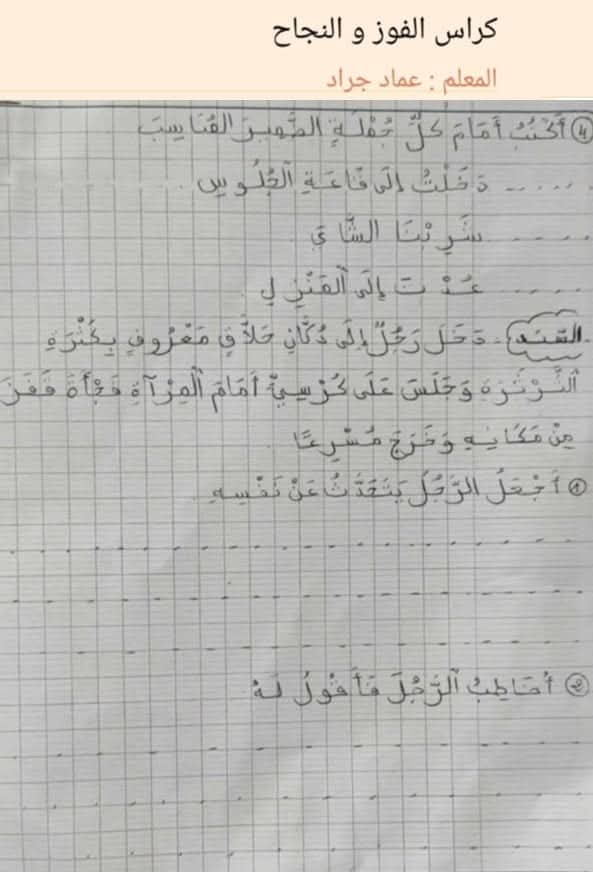 كراس الفوز و النجاح
المعلم : عماد جراد
④ أَكْتُبُ أَمَامَ كُلِّ جُمْلَةٍ الضَّمِيرَ المُنَاسِبَ
..... دَخَلْتُ إِلَى قَاعَةِ الْجُلُوسِ .
..... شَرِبْنَا الشَّايَ
..... عُدْتَ إِلَى الْمَنْزِلِ .
السّند - دَخَلَ رَجُلٌ إِلَى دُكَّانِ حَلَّاقٍ مَعْرُوفٍ بِكَثْرَةِ
الثَّرْثَرَةِ وَجَلَسَ عَلَى كُرْسِيٍّ أَمَامَ الْمِرْآةِ فَجْأَةً قَفَزَ
مِنْ مَكَانِهِ وَخَرَجَ مُسْرِعًا .
① أَجْعَلُ الرَّجُلَ يَتَحَدَّثُ عَنْ نَفْسِهِ .
② أُخَاطِبُ الرَّجُلَ فَأَقُولُ لَهُ :